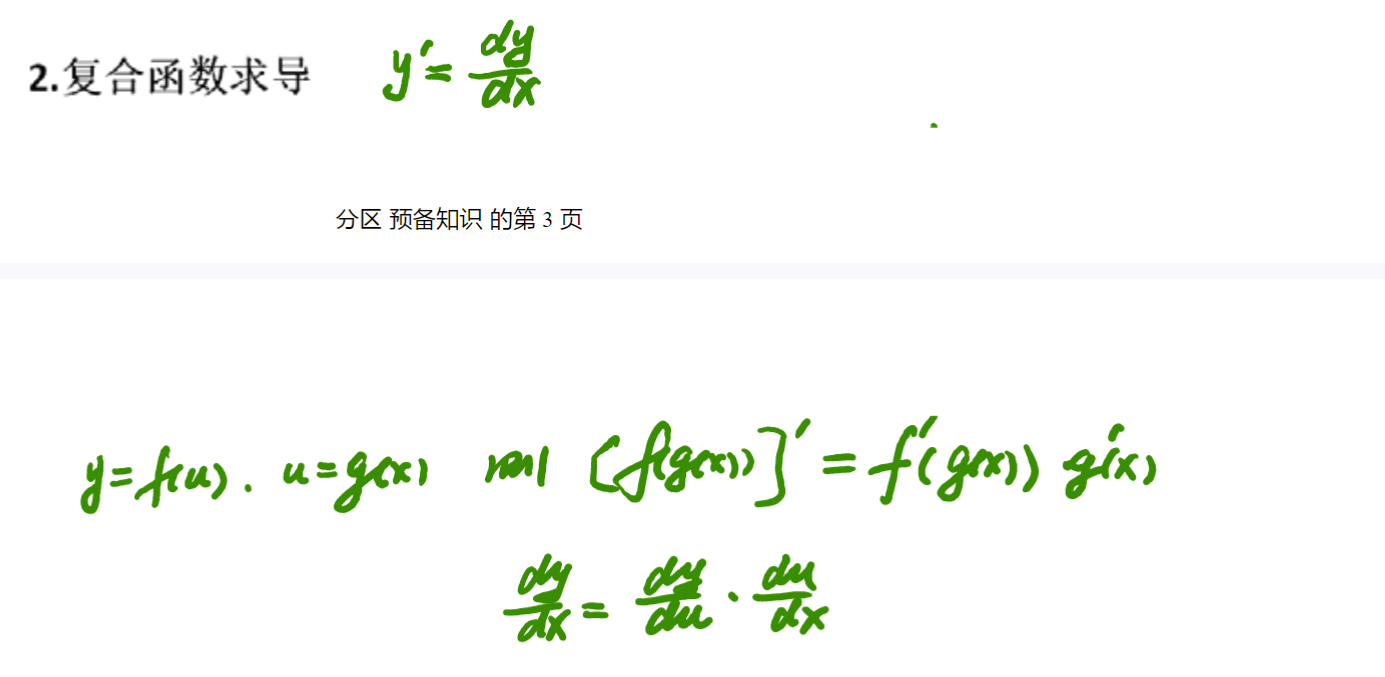 2.复合函数求导 y′=dy/dx
分区 预备知识 的第 3 页
y=f(u). u=g(x) 则 [f(g(x))]′=f′(g(x)) g′(x)
dy/dx=dy/du·du/dx